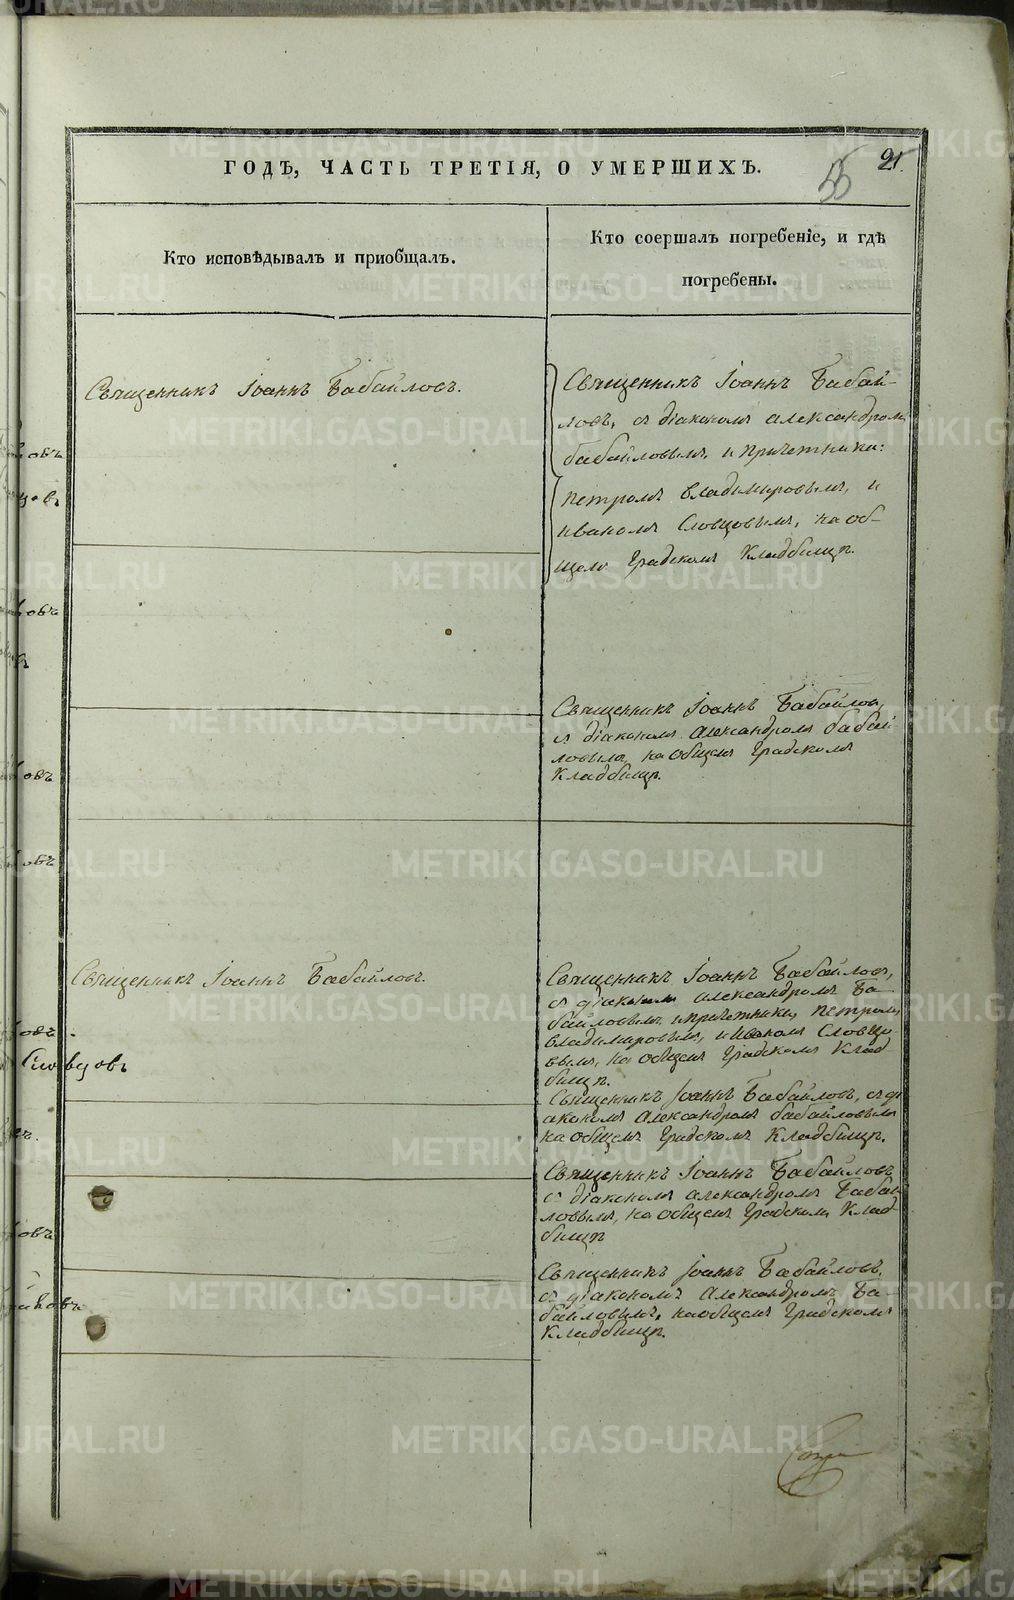 ГОДЪ, ЧАСТЬ ТРЕТІЯ, О УМЕРШИХЪ.
55
21.
Кто исповѣдывалъ и приобщалъ.
Кто соершалъ погребеніе, и гдѣ
погребены.
Священникъ Іоаннъ Бабайловъ.
Священникъ Іоаннъ Бабай-
ловъ, съ діакономъ александромъ
бабайловымъ, и причетники:
петромъ владимировымъ, и
иваномъ Словцовымъ, на об-
щемъ градскомъ кладбищѣ.
Священникъ Іоаннъ Бабайловъ,
съ діакономъ Александромъ бабай
ловымъ, на общемъ градскомъ
кладбищѣ.
Священникъ Іоаннъ Бабайловъ.
Священникъ Іоаннъ Бабайловъ,
съ діакономъ александромъ Ба-
байловымъ, и причетники, петромъ
владимировымъ, и иваномъ Словцо
вымъ, на общемъ градскомъ клад
бищѣ.
Священникъ Іоаннъ Бабайловъ, съ ді
акономъ Александромъ бабайловымъ
на общемъ градскомъ кладбищѣ.
Священникъ Іоаннъ Бабайловъ
съ діакономъ александромъ Бабай
ловымъ, на общемъ градскомъ клад
бищѣ
Священникъ Іоаннъ Бабайловъ,
съ діакономъ Александромъ Ба-
байловымъ, на общемъ градскомъ
кладбищѣ.
Словцовъ
METRIKI.GASO-URAL.RU